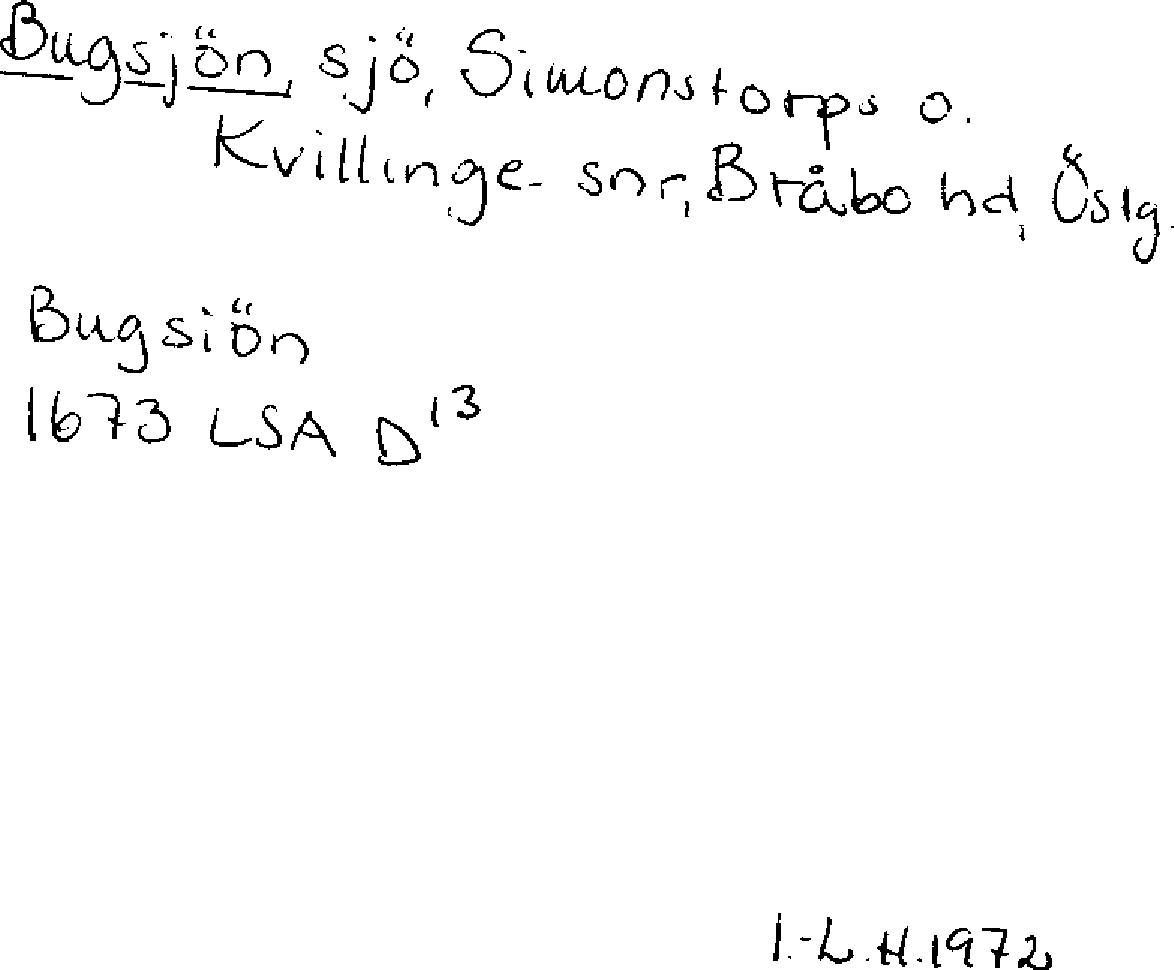 Bugsjön, sjö, Simonstorps o.
Kvillinge snr, Bråbo hd, Östg.
Bugsiön
1673 LSA D¹³
I.-L.H.1972